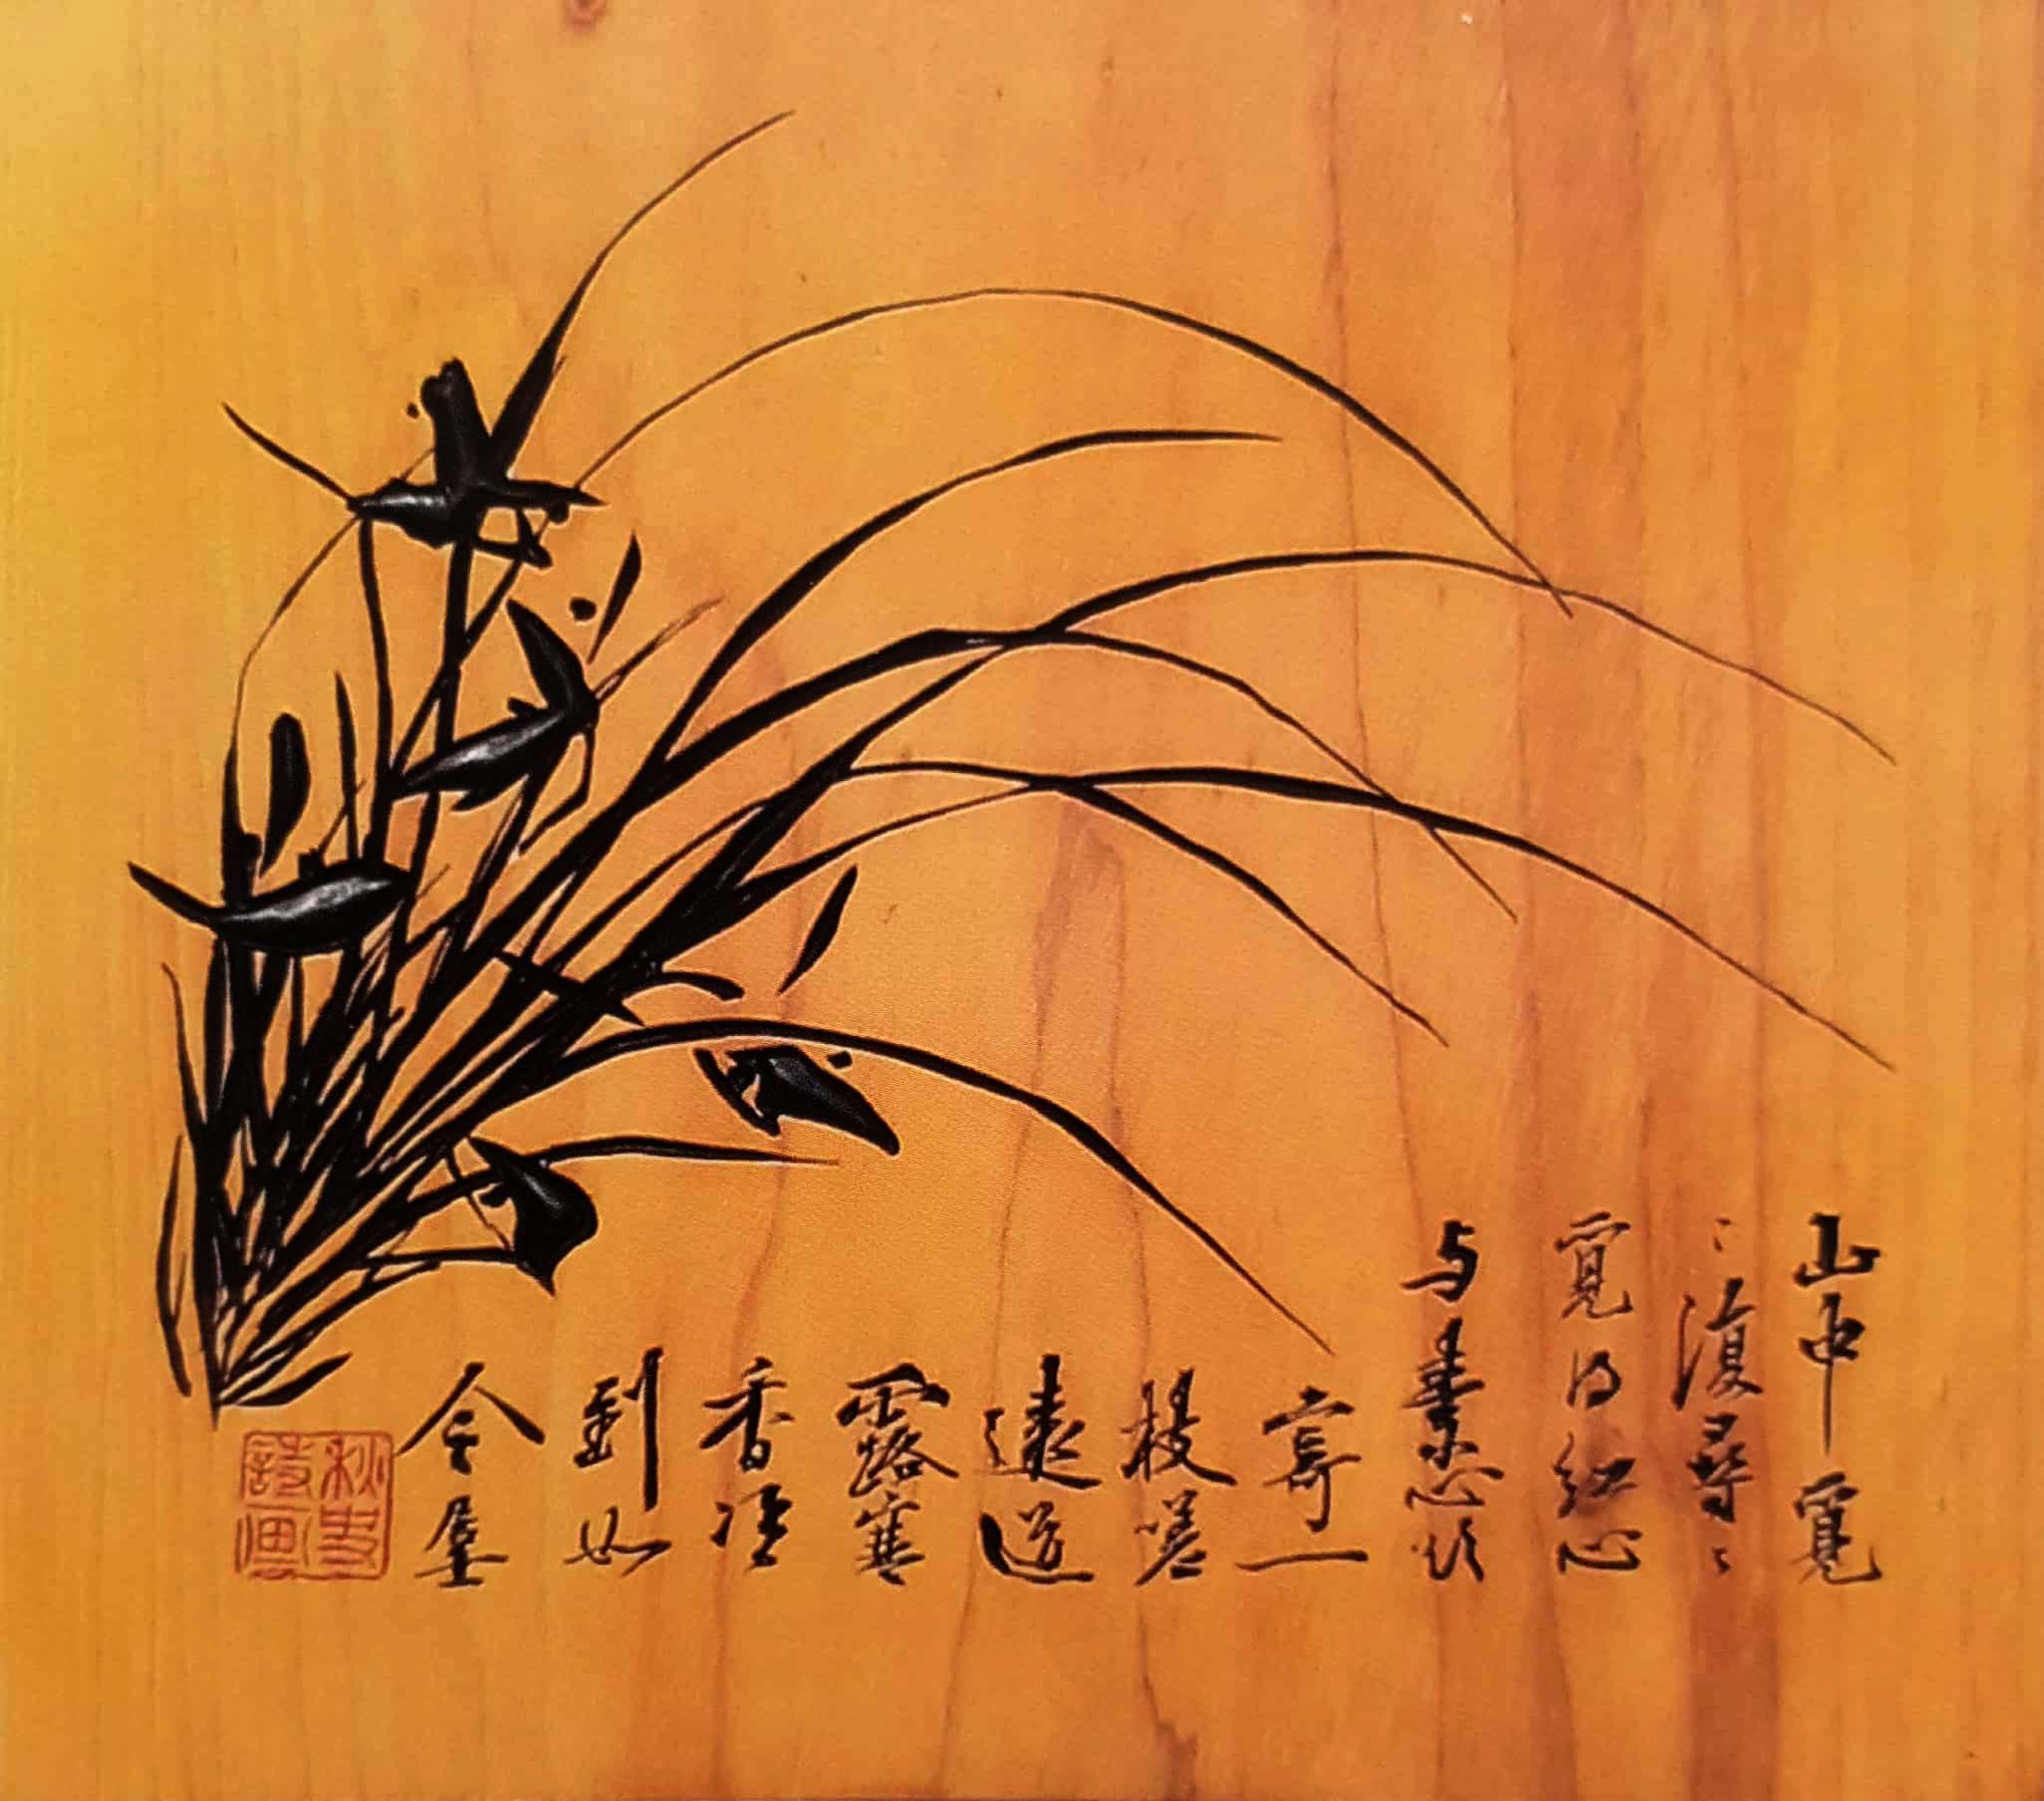 山中覓
〻復尋〻
覓得紅心
与素心欲
寄一
枝嗟
遠道
露寒
香冷
到如
今
秋史
詩画